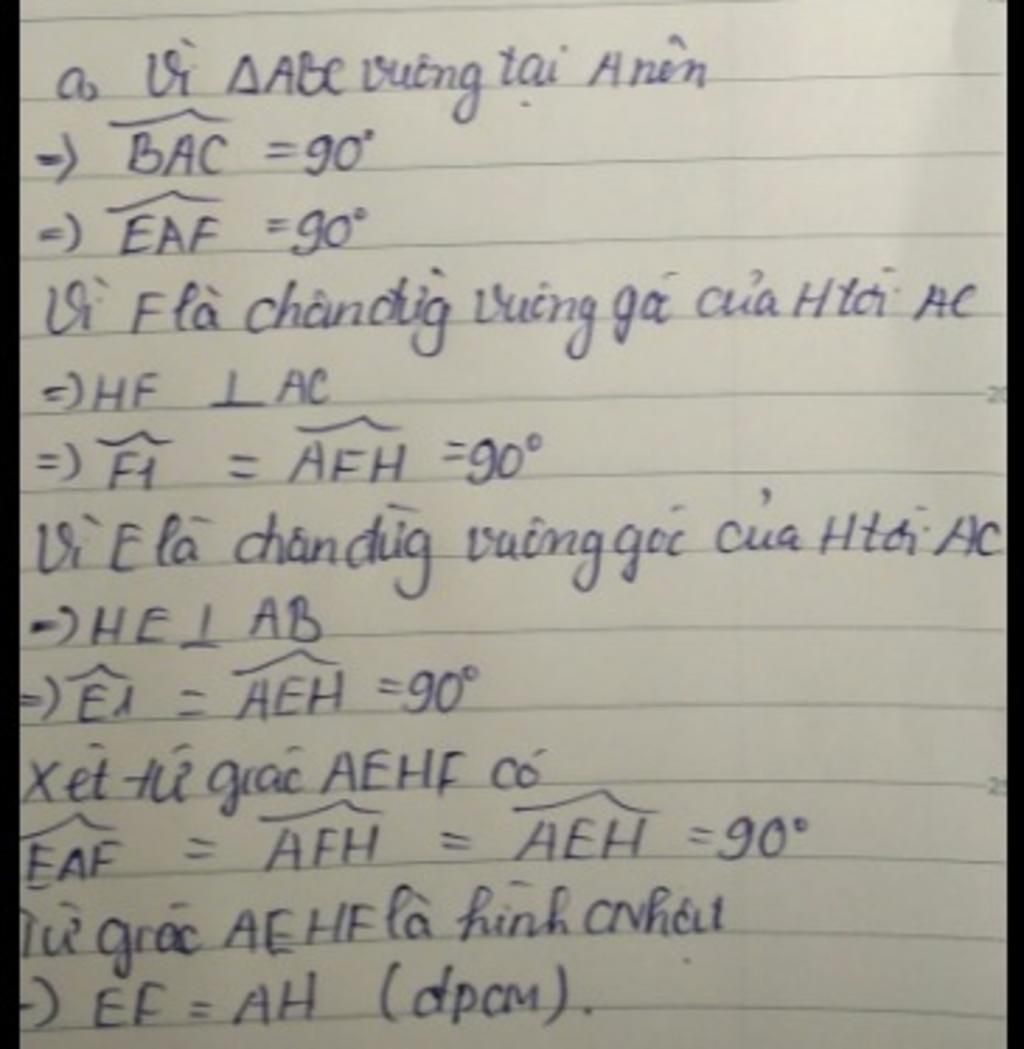 a, Vì ΔABC vuông tại A nên
=> \widehat{BAC} = 90°
=> \widehat{EAF} = 90°
Vì F là chân đường vuông góc của H tới AC
=> HF ⊥ AC
=> \widehat{F1} = \widehat{AFH} = 90°
Vì E là chân đường vuông góc của H tới AC
=> HE ⊥ AB
=> \widehat{E1} = \widehat{AEH} = 90°
Xét tứ giác AEHF có
\widehat{EAF} = \widehat{AFH} = \widehat{AEH} = 90°
Tứ giác AEHF là hình CNhật
=> EF = AH (đpcm).